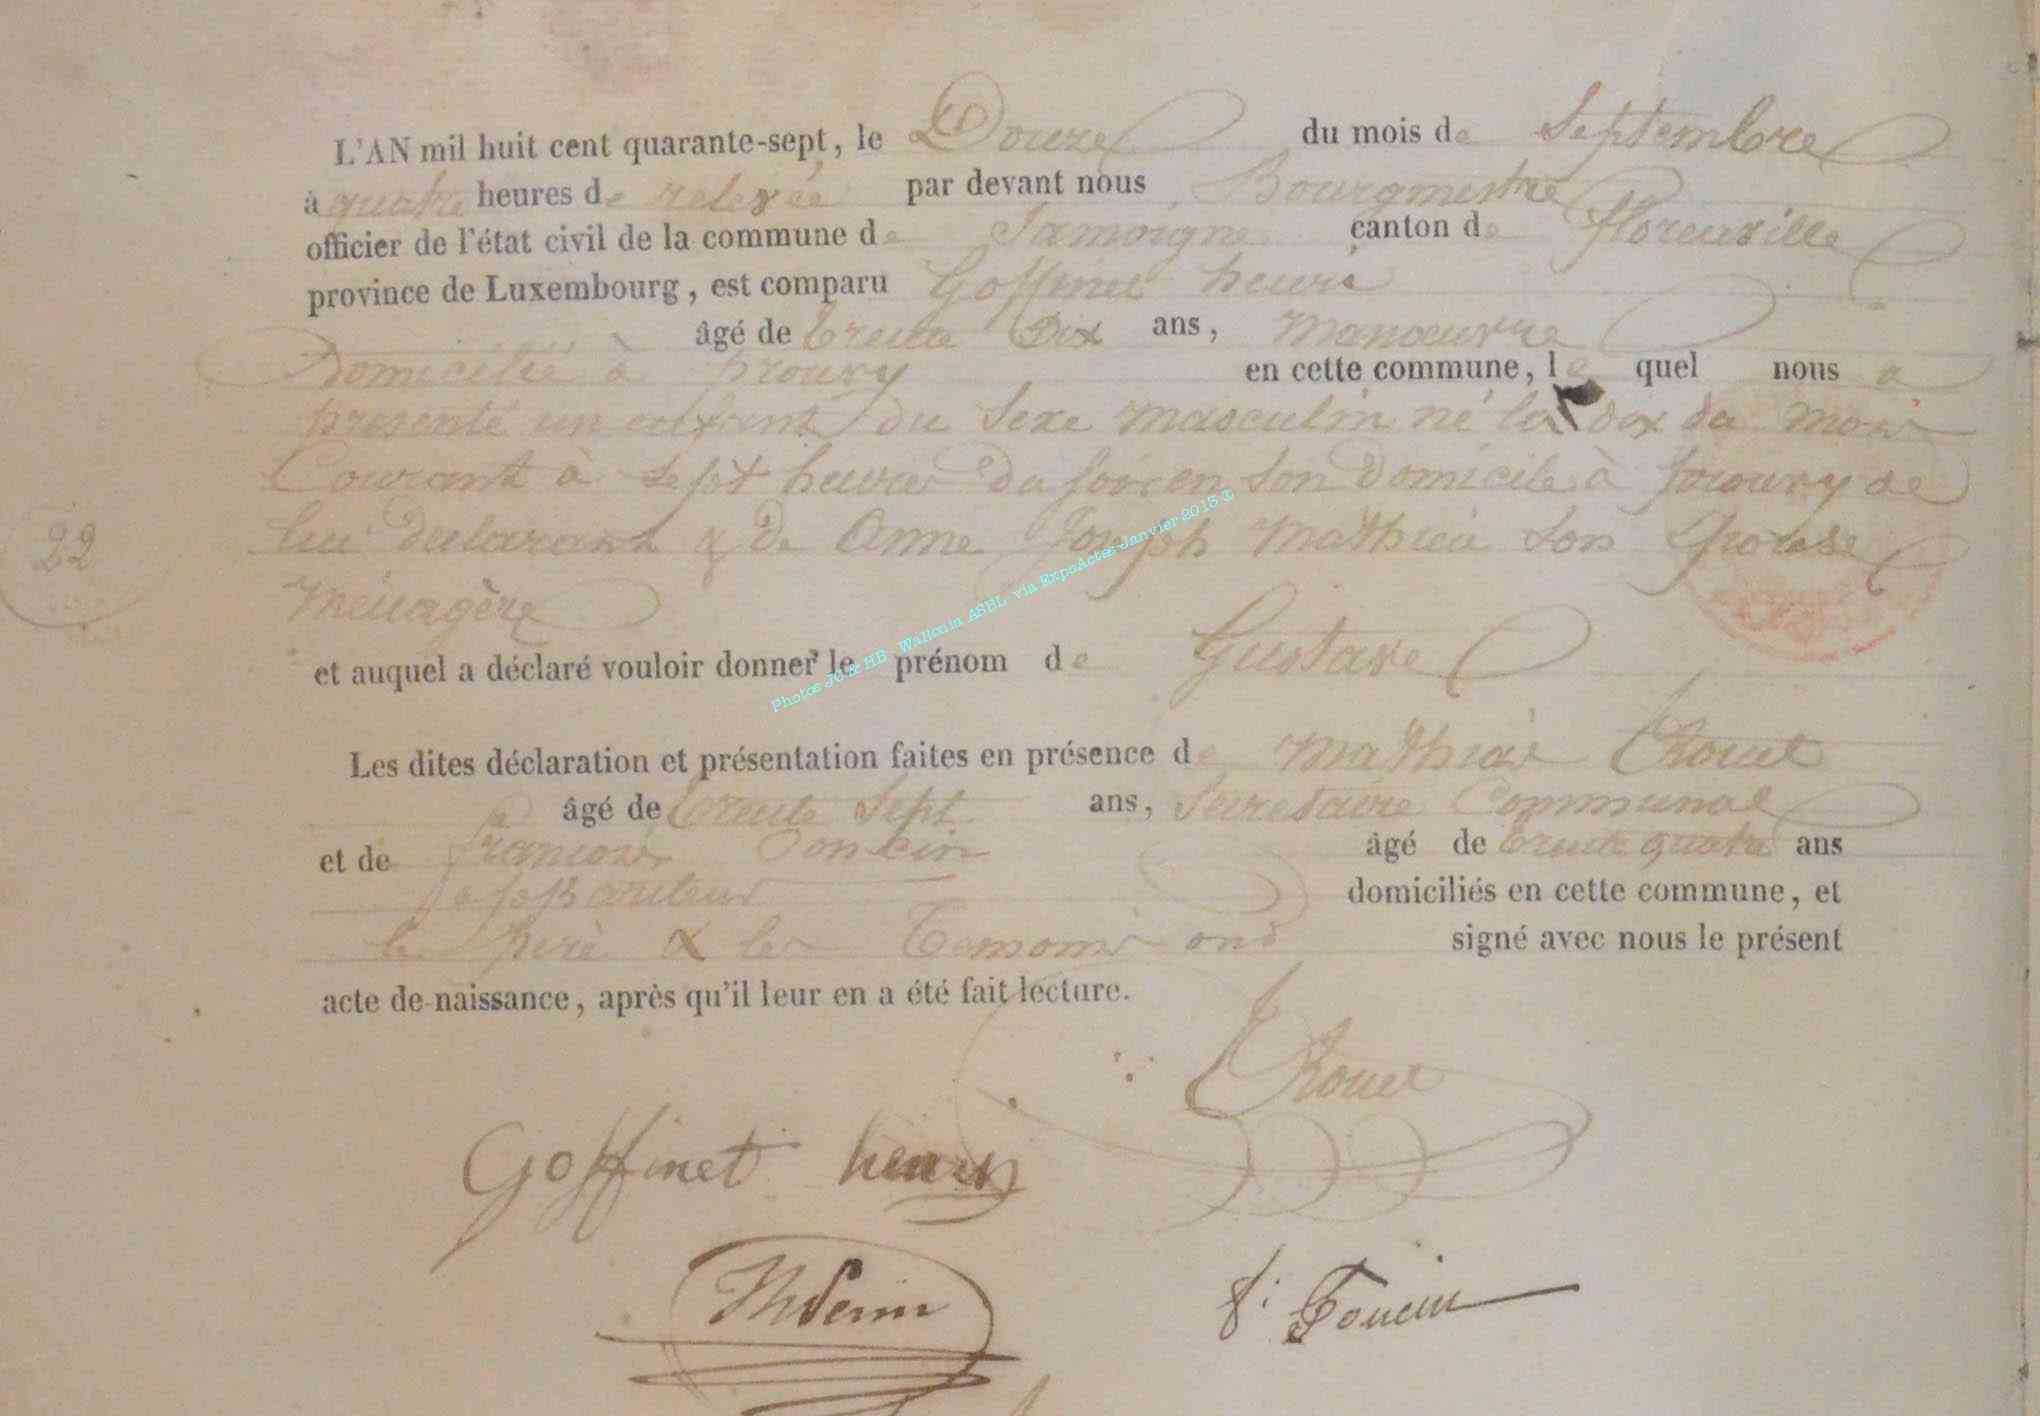 L'AN mil huit cent quarante-sept, le Douze du mois de Septembre
à quatre heures de relevée par devant nous Bourgmestre
officier de l'état civil de la commune de Jamoigne canton de florenville
province de Luxembourg, est comparu Goffinet henri
âgé de trente Dix ans, manoeuvre
Domicilié à prouvy en cette commune, le quel nous a
presenté un enfant du Sexe masculin né le dix du mois
Courant à sept heures Du soir en son Domicile à prouvy de
lui declarant & De Anne Joseph Mathieu son Epouse
22
Ménagère
et auquel a déclaré vouloir donner le prénom de Gustave
Photos JG & HB - Wallonia ASBL via ExpoActes Janvier 2015 ©
Les dites déclaration et présentation faites en présence de Mathias
âgé de trente Sept ans, Secretaire Communal
et de françois âgé de trente quatre ans
domiciliés en cette commune, et
le pere & les Temoins ont signé avec nous le présent
acte de naissance, après qu'il leur en a été fait lecture.
Goffinet henri